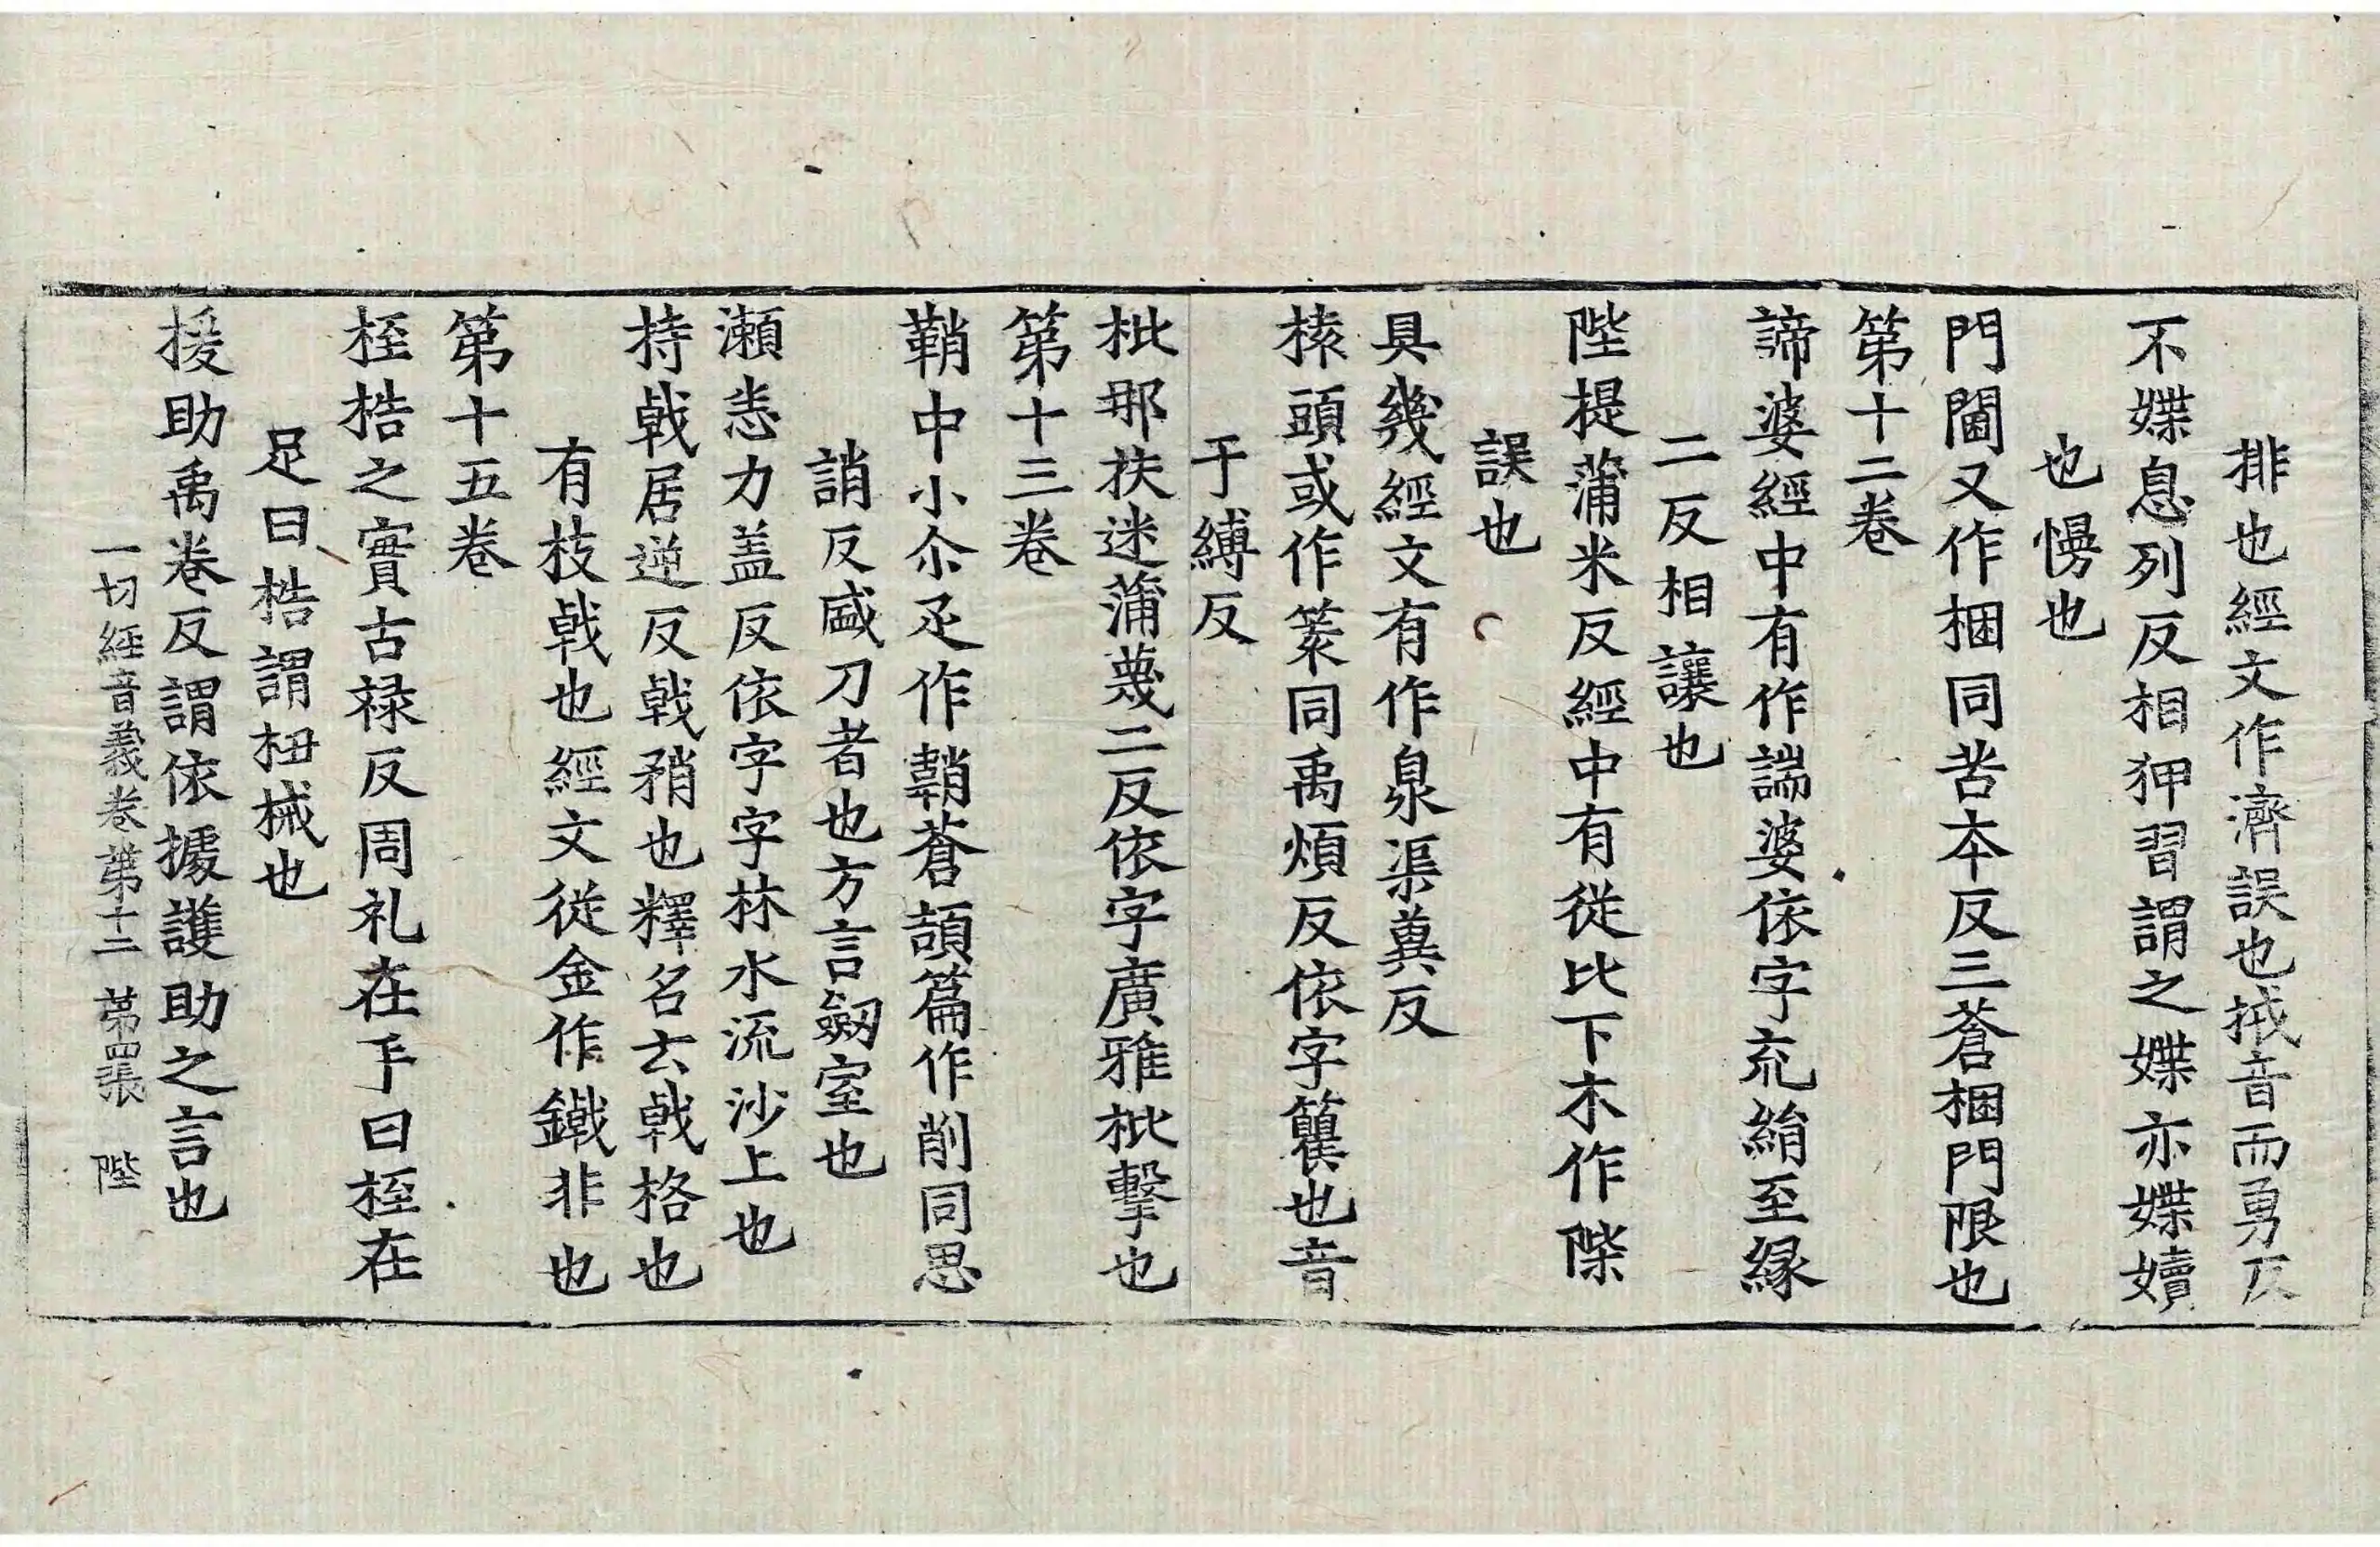 排也經文作濟誤也拭音而勇反
不媟息列反相狎習謂之媟亦媟嬻
也慢也
門閫又作梱同苦本反三蒼梱門限也
第十二卷
諦婆經中有作諯婆依字充絹至縁
二反相讓也
陛提蒲米反經中有從比下木作陛
誤也
具幾經文有作泉渠兾反
榬頭或作䈠同禹煩反依字籰也音
于縛反
枇那扶迷蒲蔑二反依字廣雅枇擊也
第十三卷
鞘中小尒疋作鞩蒼頡篇作削同思
誚反盛刀者也方言劔室也
瀬恚力盖反依字字林水流沙上也
持戟居逆反戟矟也釋名云戟格也
有枝戟也經文從金作鐵非也
第十五卷
桎梏之實古禄反周礼在手曰桎在
足曰梏謂杻械也
援助禹卷反謂依據護助之言也
一切經音義卷第十二 第四張 陛